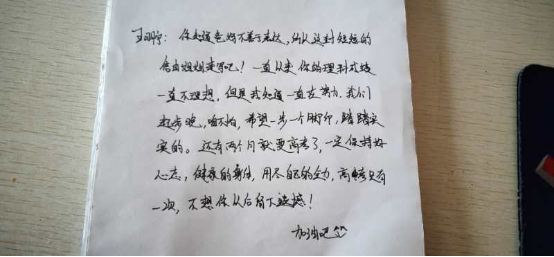 你知道爸妈不善于表达,所以这封短短的
信由姐姐来写吧!一直以来你的理科成绩
一直不理想,但是我知道一直在努力.我们
起步晚,咱不怕,希望一步一个脚印,踏踏实
实的。还有两个月就要高考了,一定保持好
心态,健康的身体,用尽自己的全力,高考只有
一次,不想你从后留下遗憾!
加油吧